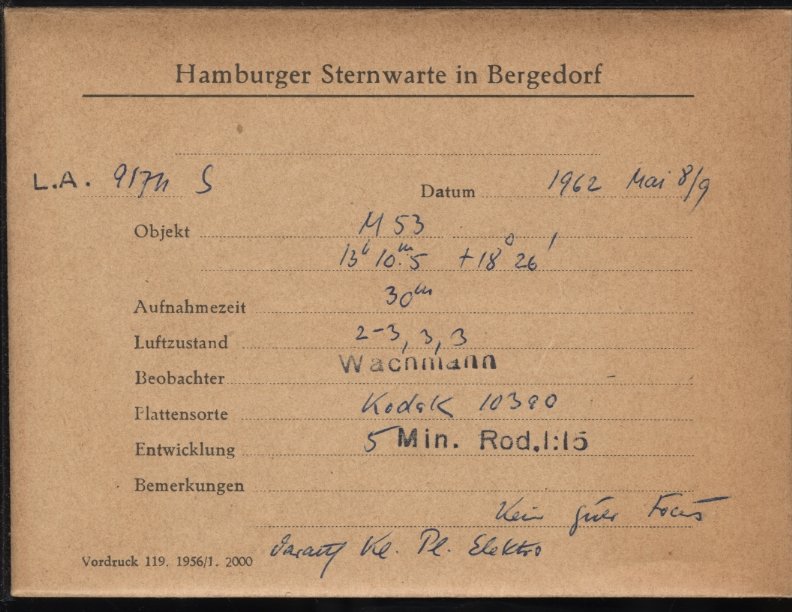 Hamburger Sternwarte in Bergedorf
L.A. S Datum 1962 Mai 8/9
Objekt M 53
13h 10m.5 +18° 26'
Aufnahmezeit 30m
Luftzustand 2-3, 3, 3
Beobachter Wachmann
Plattensorte Kodak 10380
Entwicklung 5 Min. Rod.1:15
Bemerkungen
Kein guter Focus
darauf Kl. Pl. Elektro
Vordruck 119. 1956/1. 2000